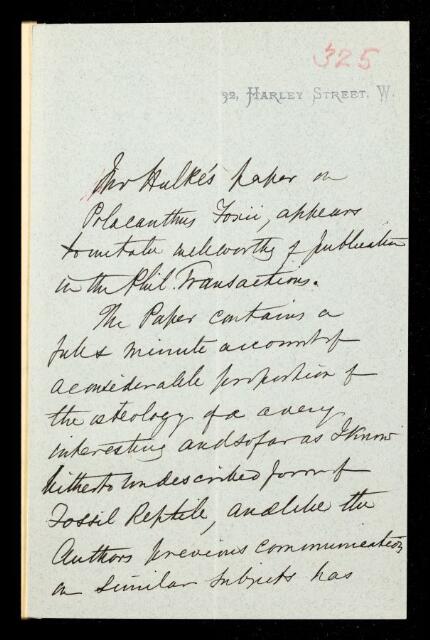 325
32, HARLEY STREET. W.
Mr Hulke's paper on
Polacanthus Foxii, appears
to me to be well worthy of publication
in the Phil. Transactions.
The Paper contains a
full & minute account of
a considerable proportion of
the osteology of a very
interesting and so far as I know
hitherto undescribed form of
Fossil Reptile, and like the
Authors previous communications
on similar subjects has